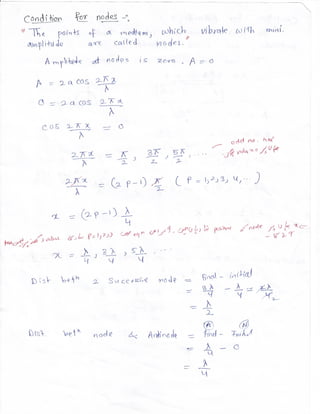 Condition for nodes -:
"The points of a medium, which vibrate with mini.
amplitude are called nodes."
Amplitude at nodes is zero. A = 0
A = 2a cos 2πx/λ
0 = 2a cos 2πx/λ
cos 2πx/λ = 0
2πx/λ = π/2, 3π/2, 5π/2, ....
odd no.
2πx/λ = (2p-1) π/2 ( P = 1,2,3,4,.. )
x = (2p-1) λ/4
x = λ/4, 3λ/4, 5λ/4 ....
Dist betn 2 Successive node = final - initial
= 3λ/4 - λ/4 = 2λ/4
= λ/2
(A) (N)
Dist betn node & Antinode = final - Initial
= λ/4 - 0
= λ/4